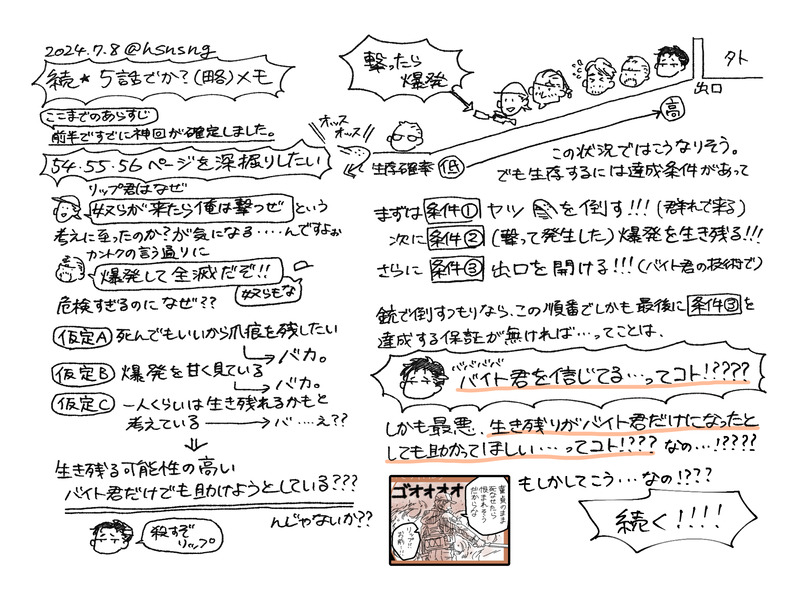 2024.7.8 @hsnsng
続★5話でか?(略)メモ
ここまでのあらすじ
前半ですでに神回が確定しました。
54.55.56ページを深掘りしたい
リップ君はなぜ
奴らが来たら俺は撃つぜ という
考えに至ったのか?が気になる‥‥んですよぉ
カントクの言う通りに
爆発して全滅だぞ!!
奴らもな
危険すぎるのになぜ??
仮定A 死んでもいいから爪痕を残したい
バカ。
仮定B 爆発を甘く見ている
バカ。
仮定C 一人くらいは生き残れるかもと
考えている バ‥‥え??
生き残る可能性の高い
バイト君だけでも助けようとしている???
んじゃないか??
殺すぞ
リップ
撃ったら
爆発
オッス
オッス!
外
出口
高
生存確率 低
この状況ではこうなりそう。
でも生存するには達成条件があって
まずは 条件① ヤツ を倒す!!!(群れで来る)
次に 条件② (撃って発生した)爆発を生き残る!!!
さらに 条件③ 出口を開ける!!!(バイト君の技術で)
銃で倒すつもりなら、この順番でしかも最後に 条件③ を
達成する保証が無ければ…ってことは、
バババババ
バイト君を信じてる…ってコト!????
しかも最悪、生き残りがバイト君だけになったと
しても助かってほしい…ってコト!??? なの…!????
ゴォォォォ
童貞のまま
死なせたら
恨まれそう
だからな
リップ!!
お前…
もしかしてこう…なの!???
続く!!!!